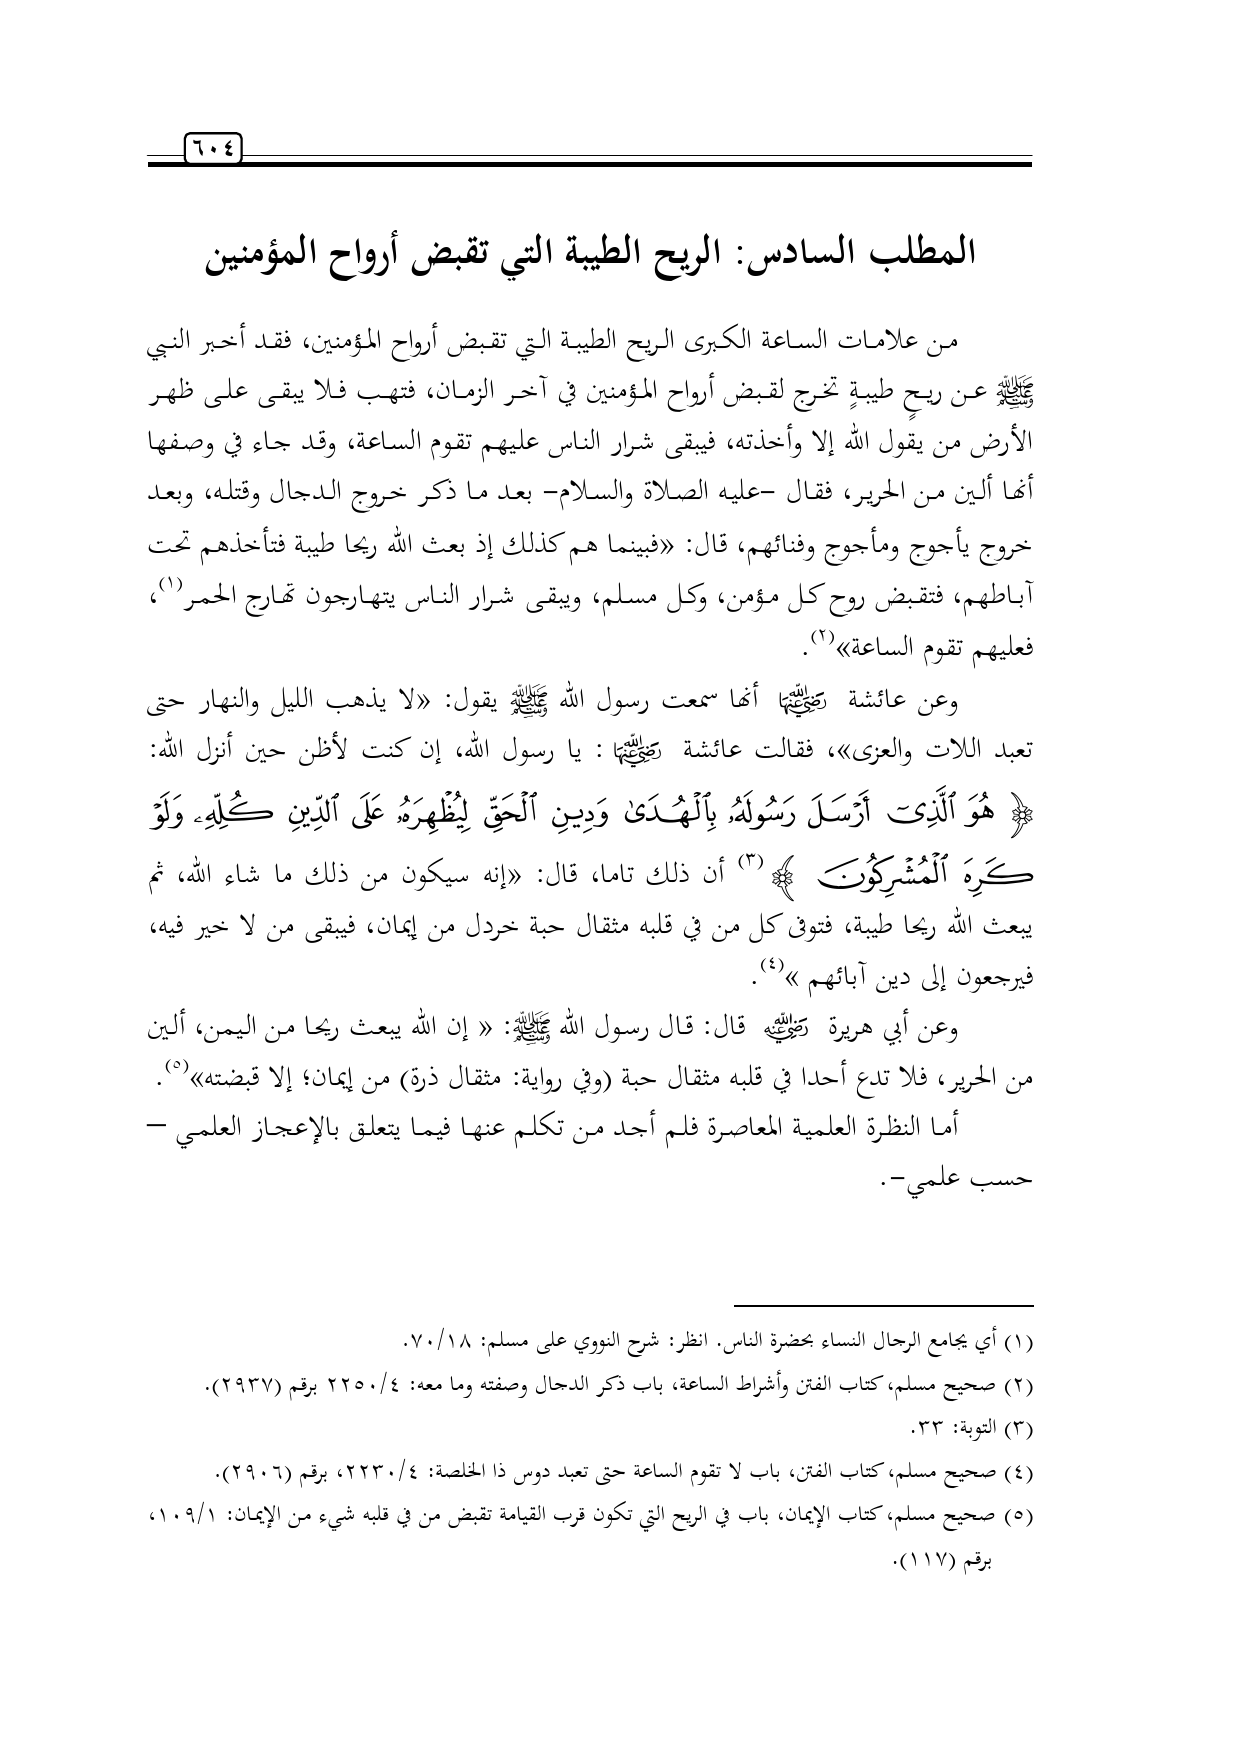 ٦٠٤
المطلب السادس: الريح الطيبة التي تقبض أرواح المؤمنين
من علامات الساعة الكبرى الريح الطيبة التي تقبض أرواح المؤمنين، فقد أخبر النبي
ﷺ عن ريحٍ طيبةٍ تخرج لقبض أرواح المؤمنين في آخر الزمان، فتهب فلا يبقى على ظهر
الأرض من يقول الله إلا وأخذته، فيبقى شرار الناس عليهم تقوم الساعة، وقد جاء في وصفها
أنها ألين من الحرير، فقال –عليه الصلاة والسلام– بعد ما ذكر خروج الدجال وقتله، وبعد
خروج يأجوج ومأجوج وفنائهم، قال: «فبينما هم كذلك إذ بعث الله ريحا طيبة فتأخذهم تحت
آباطهم، فتقبض روح كل مؤمن، وكل مسلم، ويبقى شرار الناس يتهارجون تهارج الحمر(١)،
فعليهم تقوم الساعة»(٢).
وعن عائشة رضي الله عنها أنها سمعت رسول الله ﷺ يقول: «لا يذهب الليل والنهار حتى
تعبد اللات والعزى»، فقالت عائشة رضي الله عنها : يا رسول الله، إن كنت لأظن حين أنزل الله:
﴿ هُوَ ٱلَّذِىٓ أَرْسَلَ رَسُولَهُۥ بِٱلْهُدَىٰ وَدِينِ ٱلْحَقِّ لِيُظْهِرَهُۥ عَلَى ٱلدِّينِ كُلِّهِۦ وَلَوْ
كَرِهَ ٱلْمُشْرِكُونَ ﴾(٣) أن ذلك تاما، قال: «إنه سيكون من ذلك ما شاء الله، ثم
يبعث الله ريحا طيبة، فتوفى كل من في قلبه مثقال حبة خردل من إيمان، فيبقى من لا خير فيه،
فيرجعون إلى دين آبائهم »(٤).
وعن أبي هريرة رضي الله عنه قال: قال رسول الله ﷺ: « إن الله يبعث ريحا من اليمن، ألين
من الحرير، فلا تدع أحدا في قلبه مثقال حبة (وفي رواية: مثقال ذرة) من إيمان؛ إلا قبضته»(٥).
أما النظرة العلمية المعاصرة فلم أجد من تكلم عنها فيما يتعلق بالإعجاز العلمي –
حسب علمي–.
(١) أي يجامع الرجال النساء بحضرة الناس. انظر: شرح النووي على مسلم: ٧٠/١٨.
(٢) صحيح مسلم، كتاب الفتن وأشراط الساعة، باب ذكر الدجال وصفته وما معه: ٢٢٥٠/٤ برقم (٢٩٣٧).
(٣) التوبة: ٣٣.
(٤) صحيح مسلم، كتاب الفتن، باب لا تقوم الساعة حتى تعبد دوس ذا الخلصة: ٢٢٣٠/٤، برقم (٢٩٠٦).
(٥) صحيح مسلم، كتاب الإيمان، باب في الريح التي تكون قرب القيامة تقبض من في قلبه شيء من الإيمان: ١٠٩/١،
برقم (١١٧).